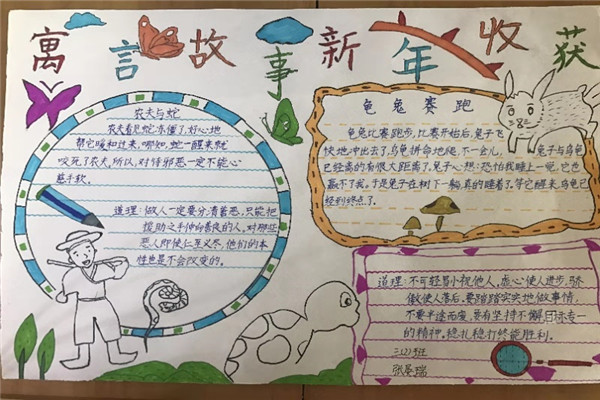 寓言故事新年收获
农夫与蛇
农夫看见蛇冻僵了,好心地
帮它暖和过来,哪知,蛇一醒来就
咬死了农夫。所以,对待邪恶一定不能心
慈手软。
道理:做人一定要分清善恶,只能把
援助之手伸向善良的人,对那些
恶人即使仁至义尽,他们的本
性也是不会改变的。
龟兔赛跑
龟兔比赛跑步,比赛开始后,兔子飞
快地冲出去了,乌龟拼命地爬,不一会儿,兔子与乌龟
已经离的有很大距离了,兔子心想:恐怕我睡上一觉,它也
赢不了我。于是兔子在树下一躺,真的睡着了,等它醒来,乌龟已
经到终点了。
道理:不可轻易小视他人,虚心使人进步,骄
傲使人落后,要踏踏实实地做事情,
不要半途而废,要有坚持不懈,专一
的精神。稳扎稳打终能胜利。
三(2)班
张晏瑞